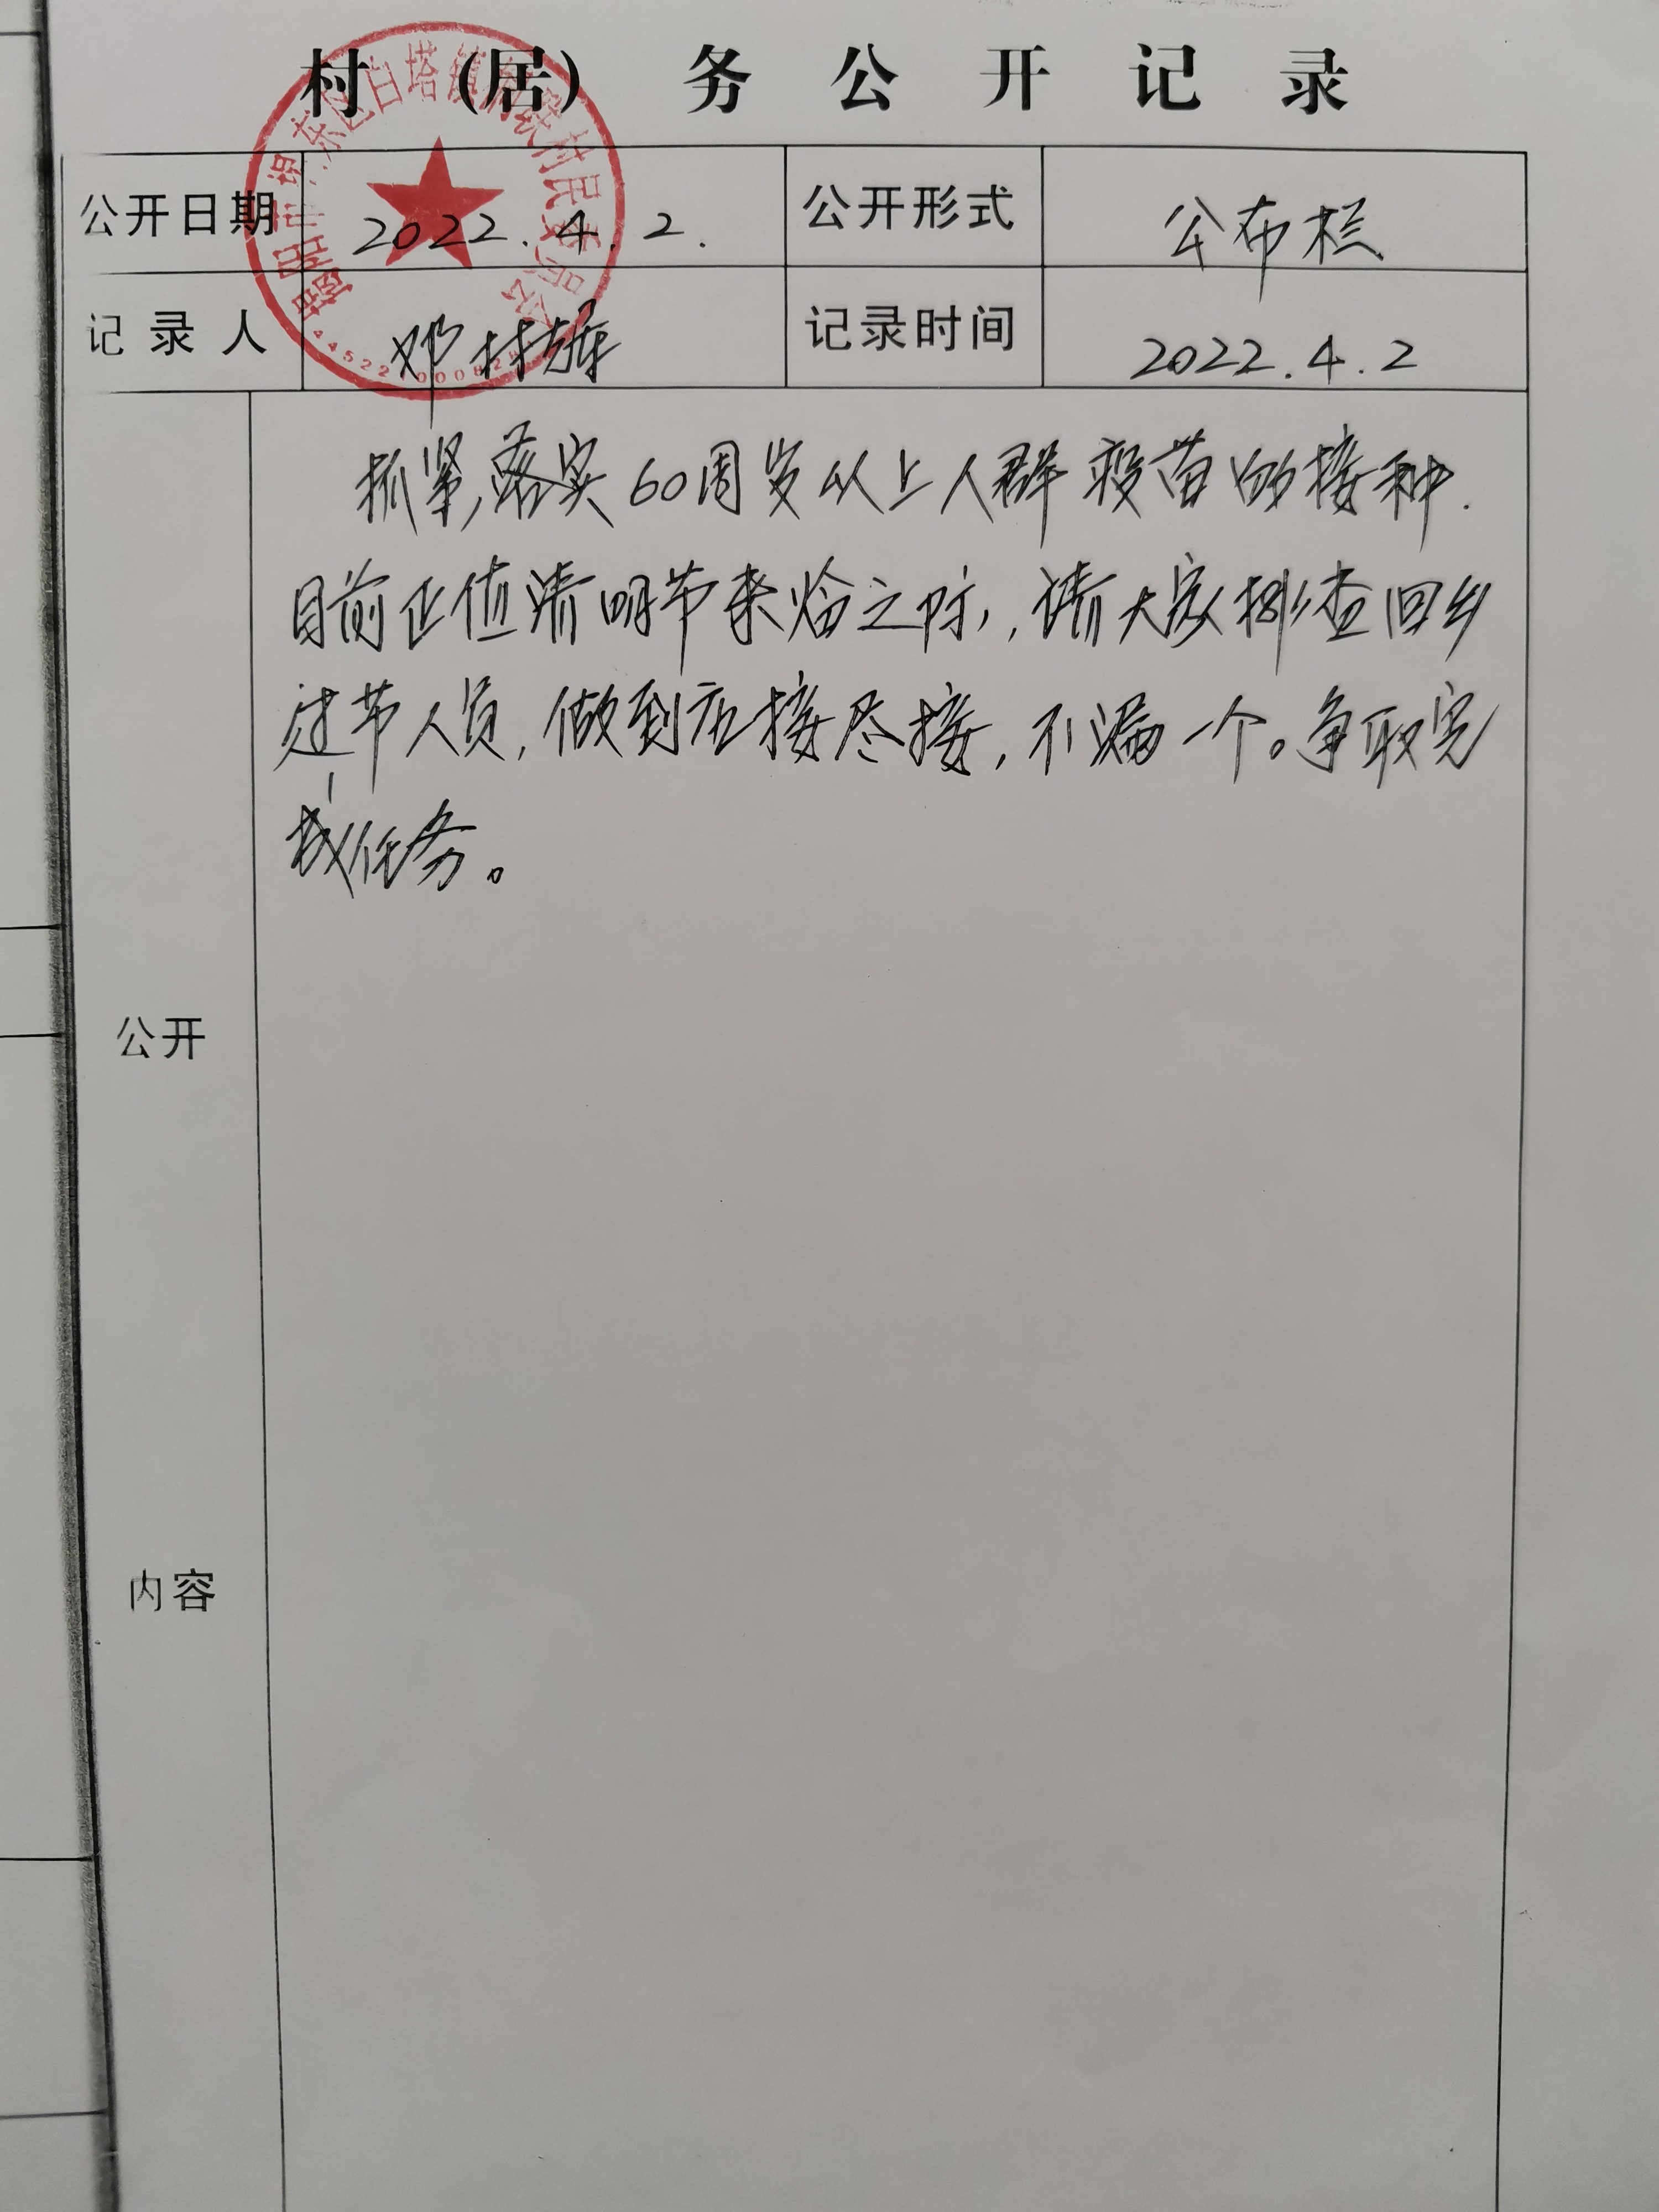 村 (居) 务 公 开 记 录
公开日期 2022.4.2. 公开形式 公布栏
记 录 人 邓林雄 记录时间 2022.4.2
抓紧,落实60周岁以上人群疫苗的接种.
目前正值清明节来临之际,,请大家排查回乡
过节人员,做到应接尽接,不漏一个。争取完
成任务。
公开
内容
东区白塔镇 村民委员会